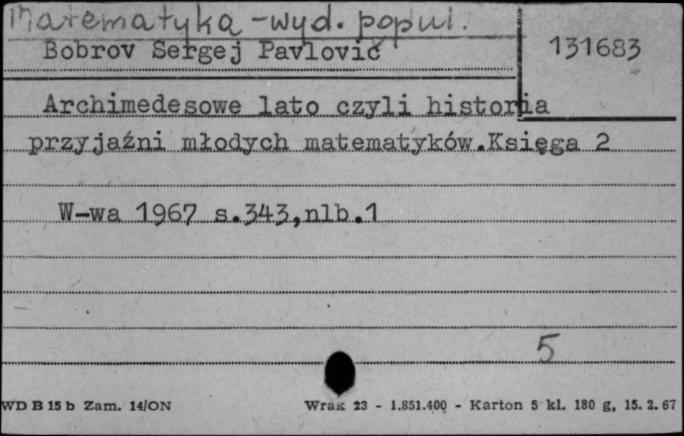 Matematyka - wyd. popul.
Bobrov Sergej Pavlovič
131683
Archimedesowe lato czyli historia
przyjaźni młodych matematyków.Księga 2
W-wa 1967 s.343,nlb.1
5
WD B 15 b Zam. 14/ON
Wrak 23 - 1.851.400 - Karton 5 kl. 180 g, 15. 2. 67